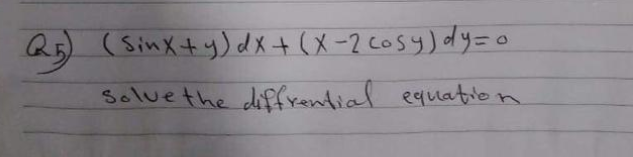 Q5) (sinx+y)dx+(x-2cosy)dy=0
solve the diffrential equation